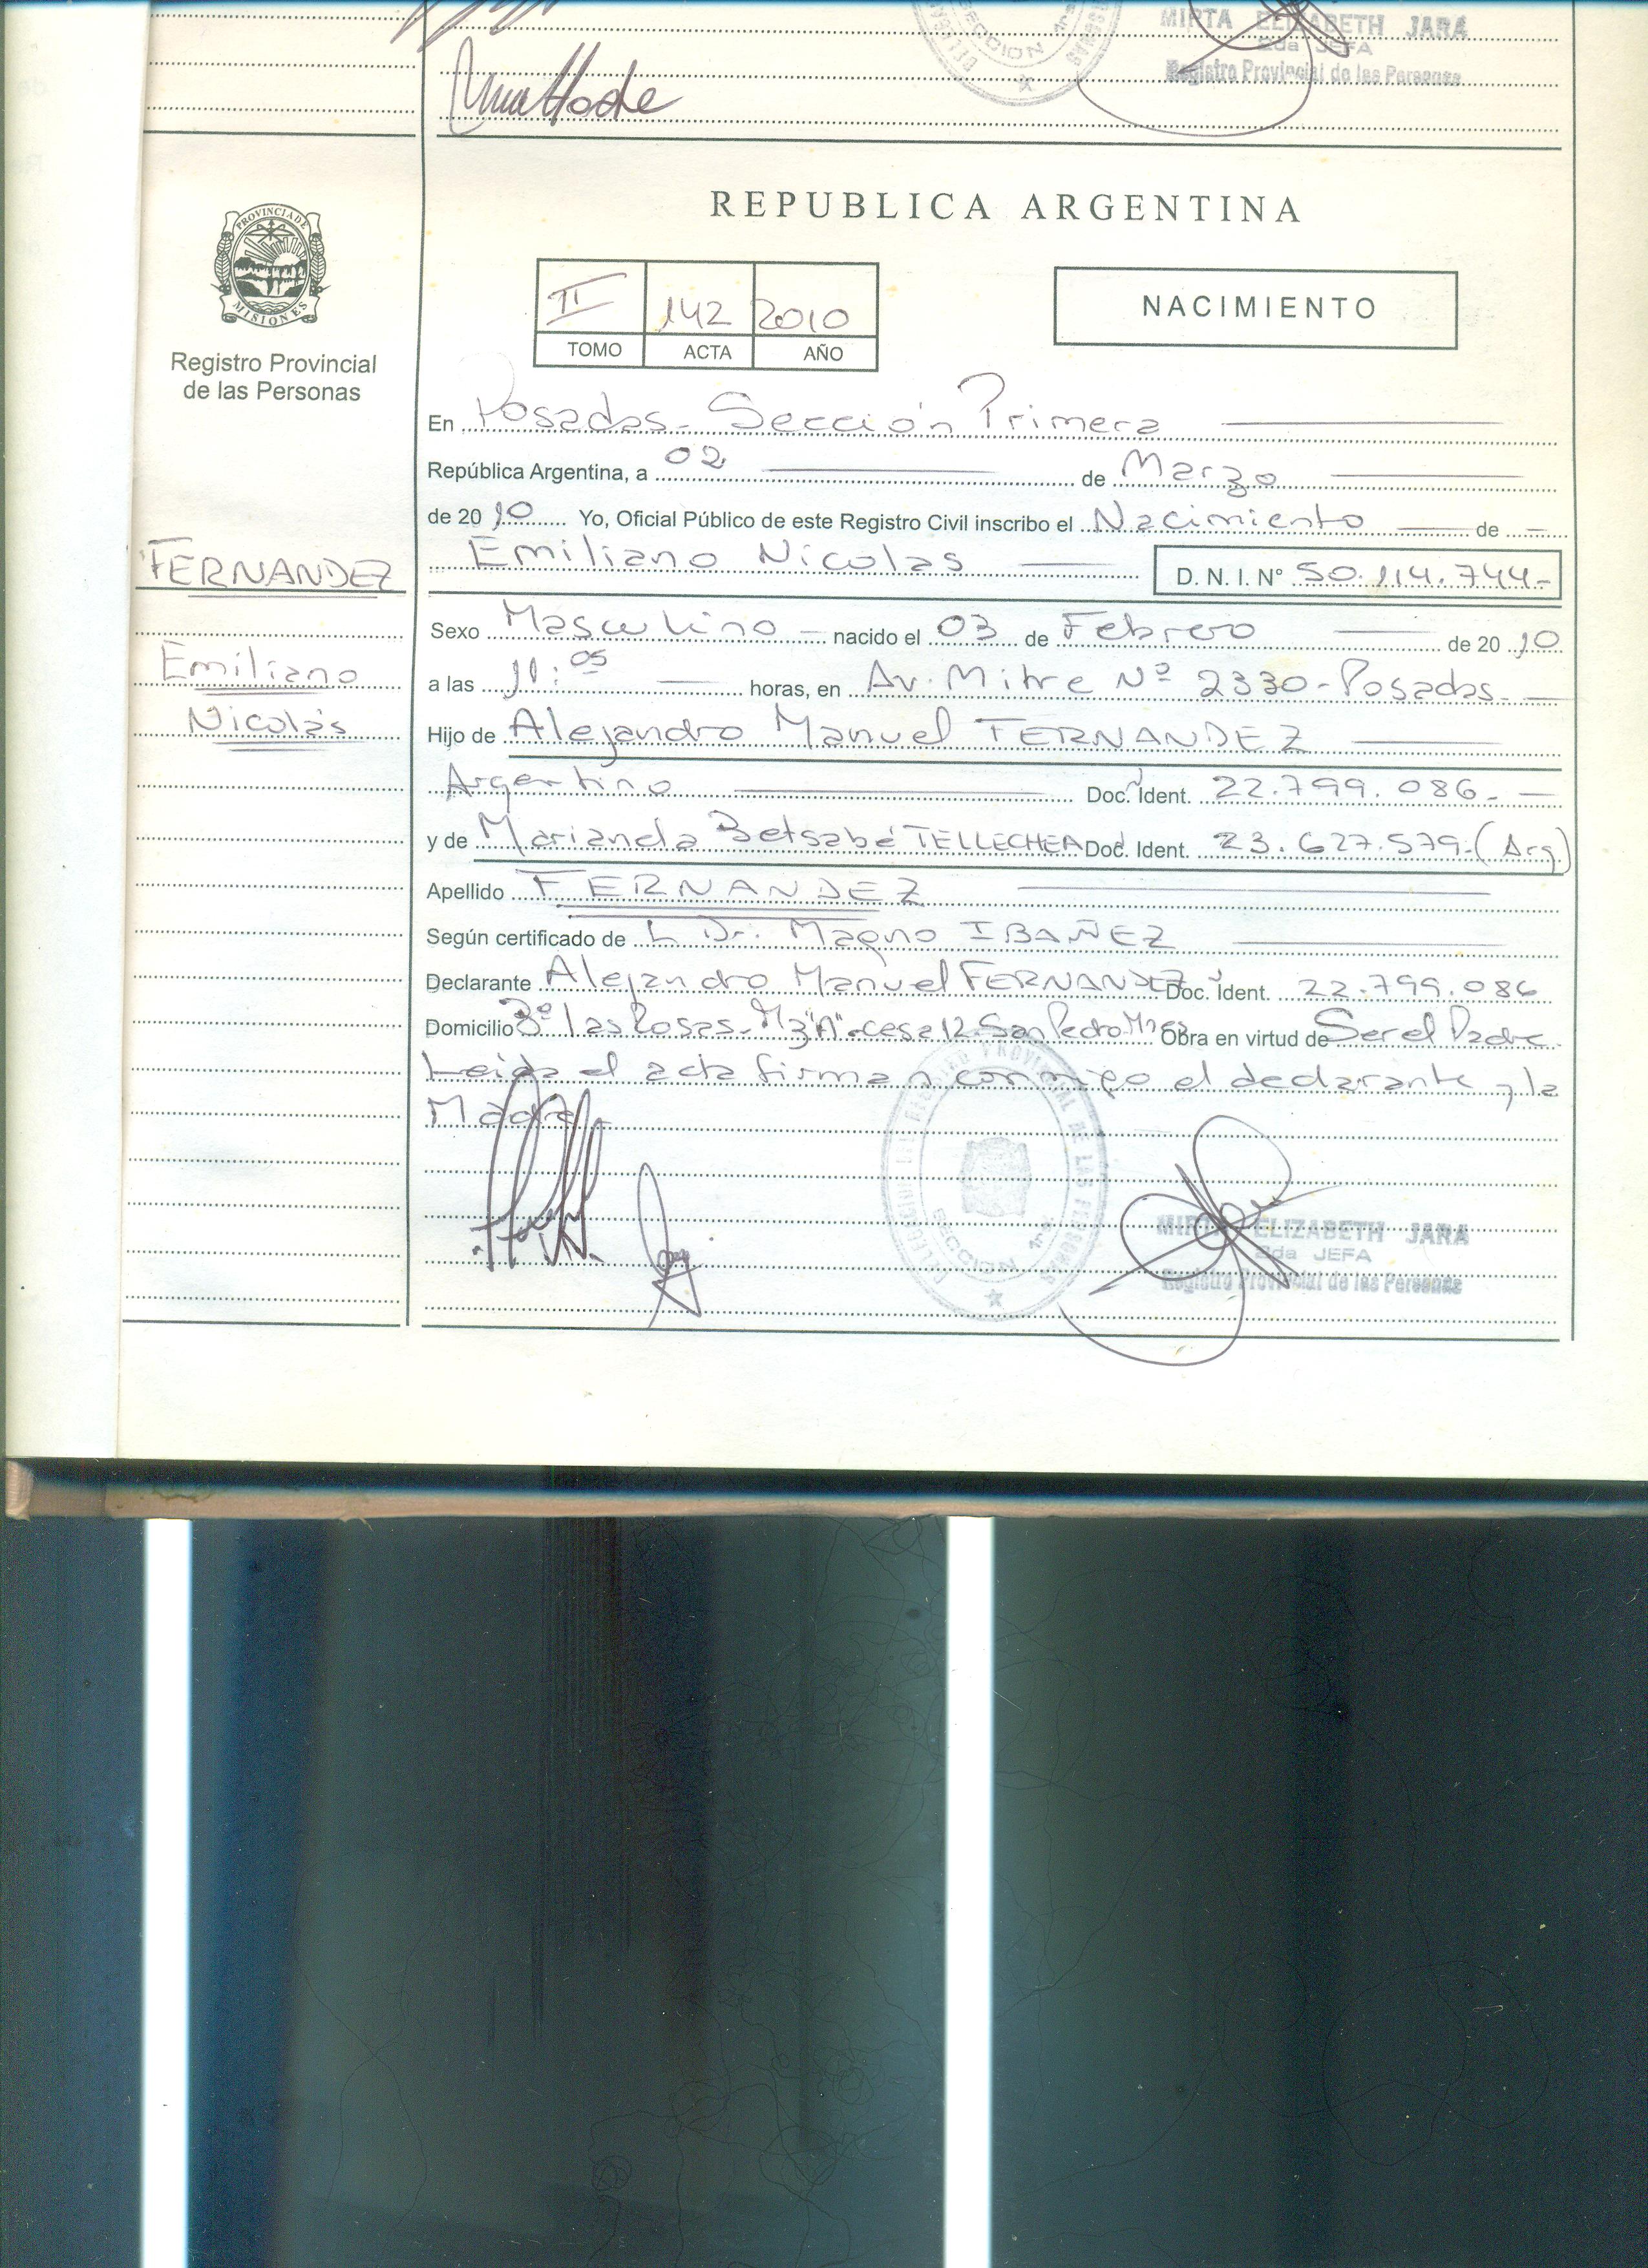 MIRTA ELIZABETH JARA
2da JEFA
Registro Provincial de las Personas
SECCION 1ra
REPUBLICA ARGENTINA
PROVINCIA DE
MISIONES
Registro Provincial
de las Personas
II 142 2010
TOMO ACTA AÑO
NACIMIENTO
En Posadas - Sección Primera
República Argentina, a 02 de Marzo
de 2010 Yo, Oficial Público de este Registro Civil inscribo el Nacimiento de
FERNANDEZ
Emiliano Nicolas D. N. I. Nº 50.114.744-
Sexo Masculino nacido el 03 de Febrero de 2010
Emiliano
a las 11:05 horas, en Av. Mitre Nº 2330 - Posadas -
Nicolás
Hijo de Alejandro Manuel FERNANDEZ
Argentino Doc. Ident. 22.799.086-
y de Marianela Betsabé TELLECHEA Doc. Ident. 23.627.579-(Arg)
Apellido FERNANDEZ
Según certificado de L Dr. Magno IBAÑEZ
Declarante Alejandro Manuel FERNANDEZ Doc. Ident. 22.799.086
Domicilio Bº Las Rosas - Mz "A" - casa 12 - San Pedro Mnes Obra en virtud de Ser el Padre -
Leida el acta firman conmigo el declarante y la
Madre
REGISTRO PROVINCIAL DE LAS PERSONAS
SECCION 1ra
MIRTA ELIZABETH JARA
2da JEFA
Registro Provincial de las Personas